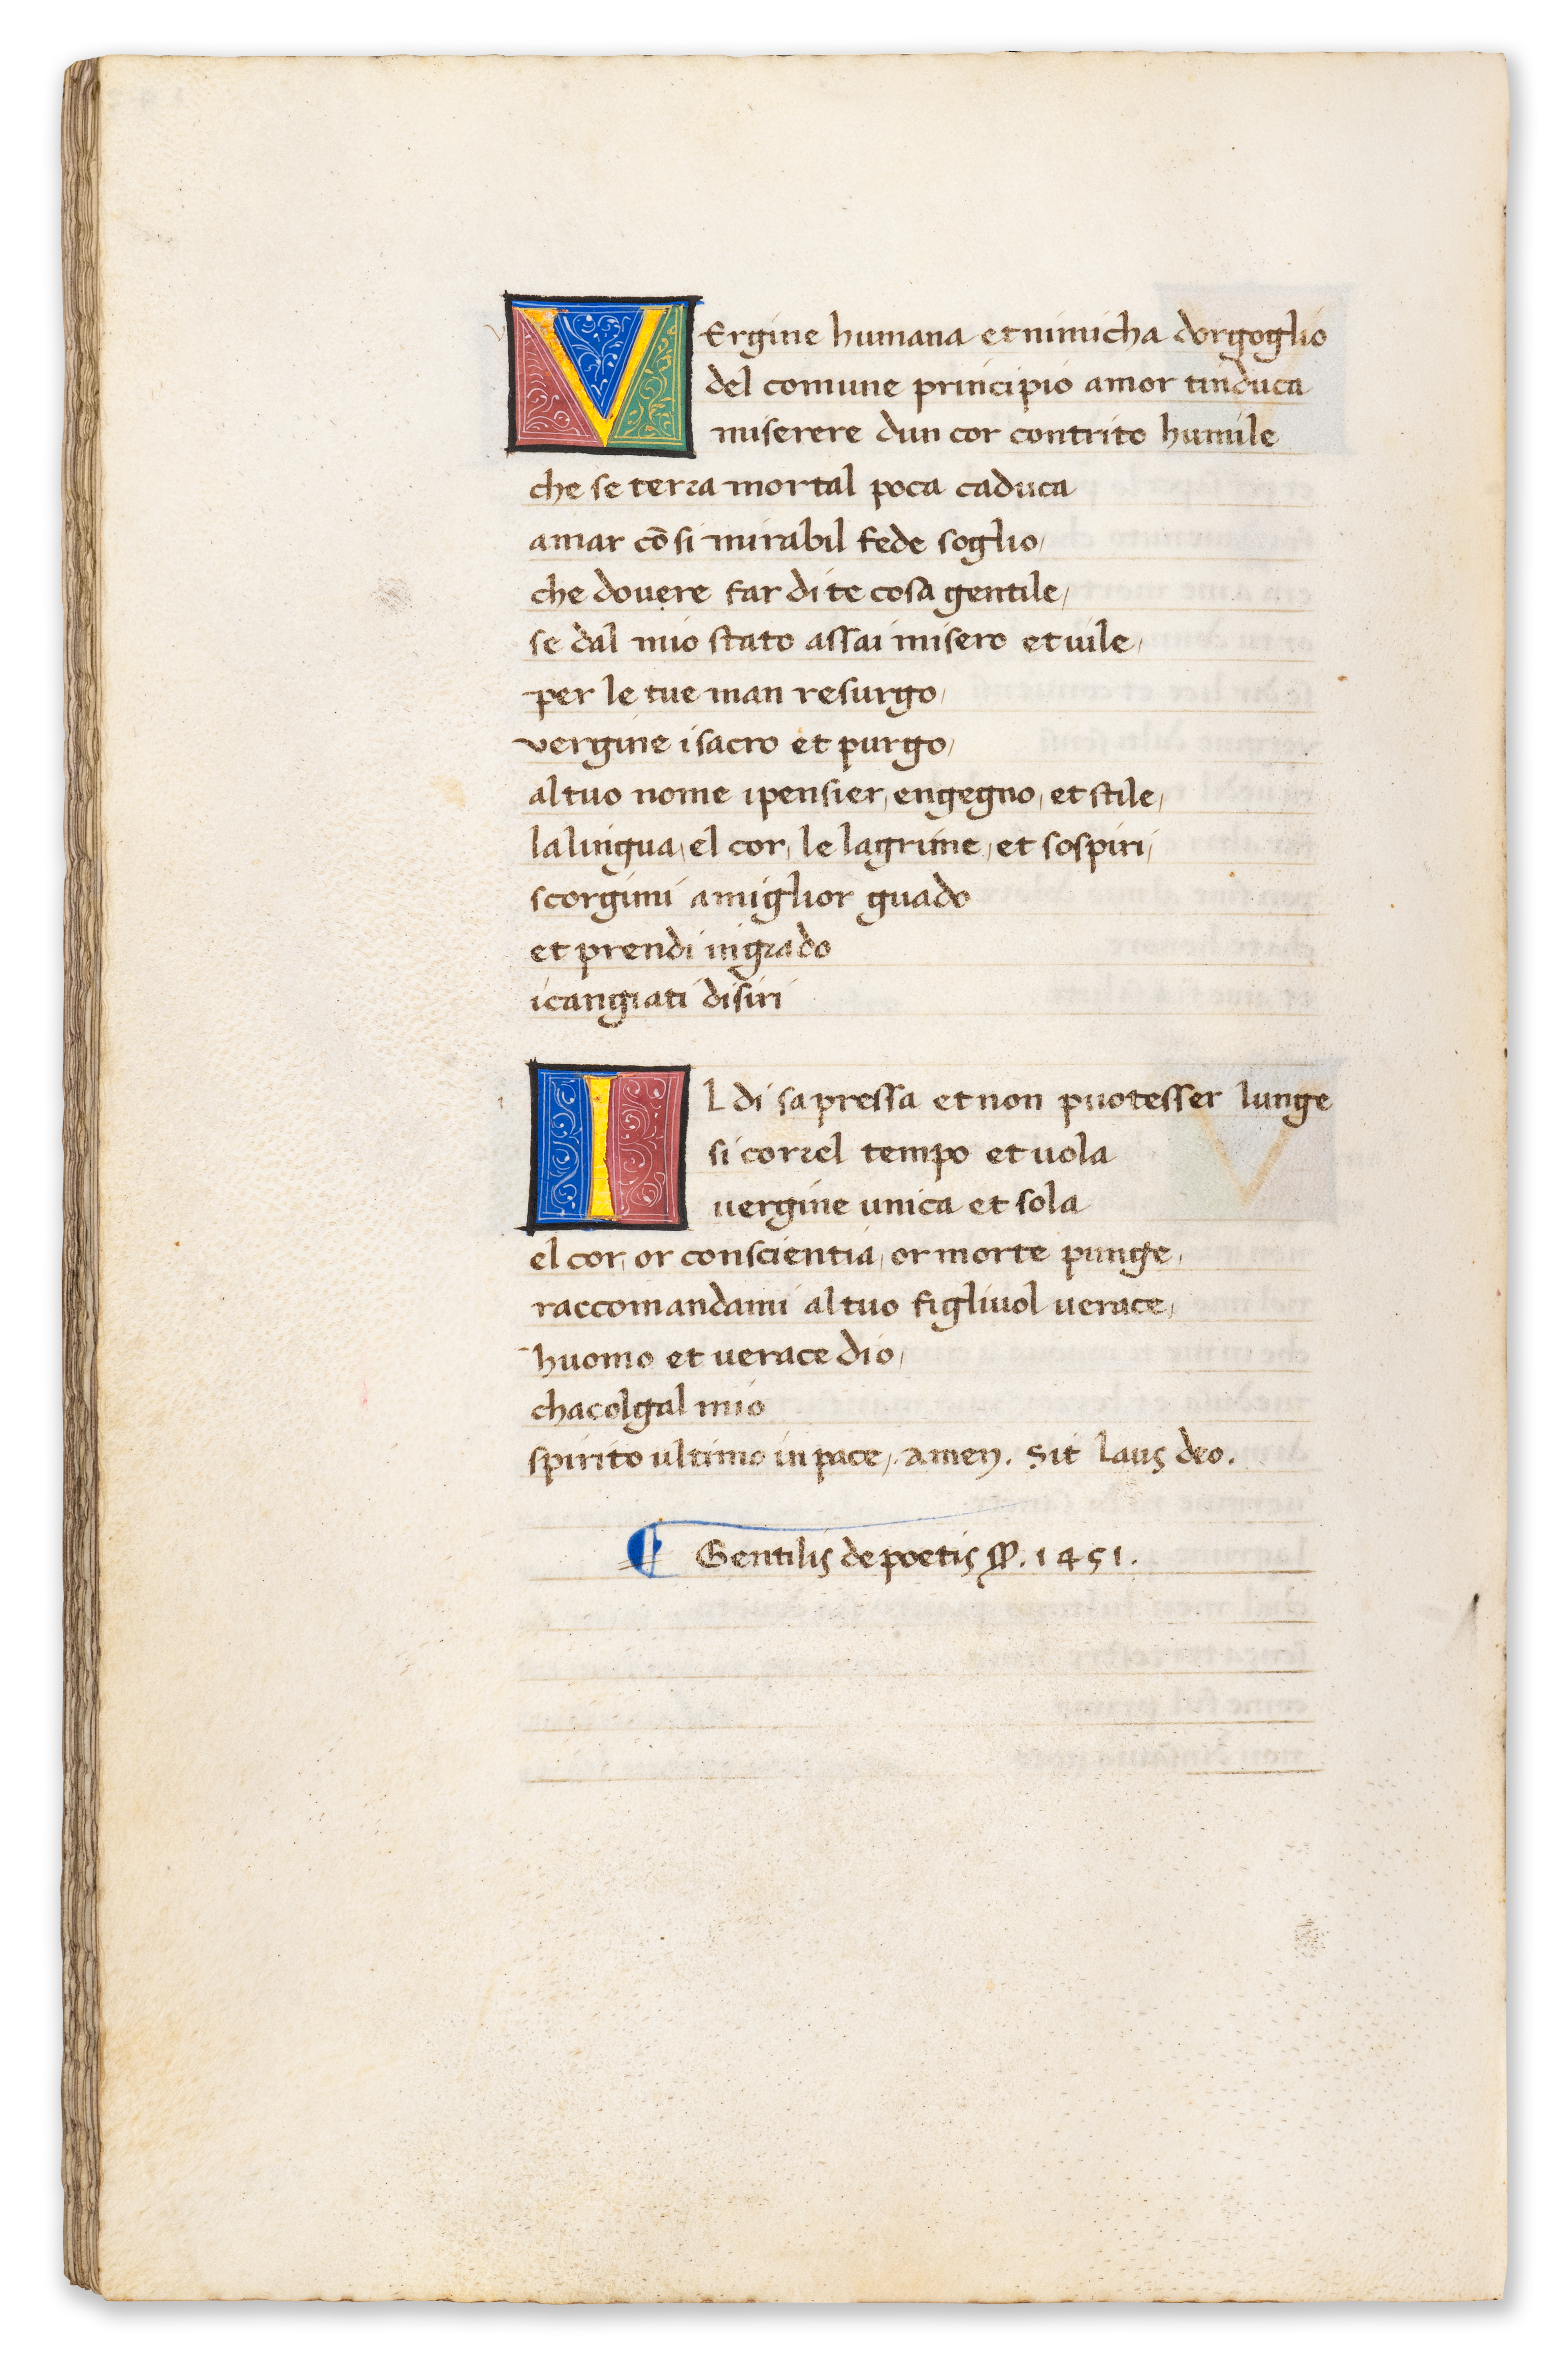 VErgine humana et nimicha dorgoglio
del comune principio amor tinduca
miserere dun cor contrito humile
che se terra mortal poca caduca
amar cō si mirabil fede soglio/
che dovere far di te cosa gentile/
se dal mio stato assai misero et vile/
per le tue man resurgo/
vergine i sacro et purgo/
al tuo nome ipensier/ engegno/ et stile/
la lingua/ el cor/ le lagrime/ et sospiri/
scorgimi amiglior guado
et prendi ingrado
icangiati disiri
IL di sapressa et non puotesser lunge
si correl tempo et uola
uergine unica et sola
el cor/ or conscientia/ or morte punge/
raccomandami al tuo figliuol uerace/
huomo et uerace dio/
chacolgal mio
spirito ultimo in pace/. amen. Sit laus deo.
¶ Gentilis de poetis . 1451.